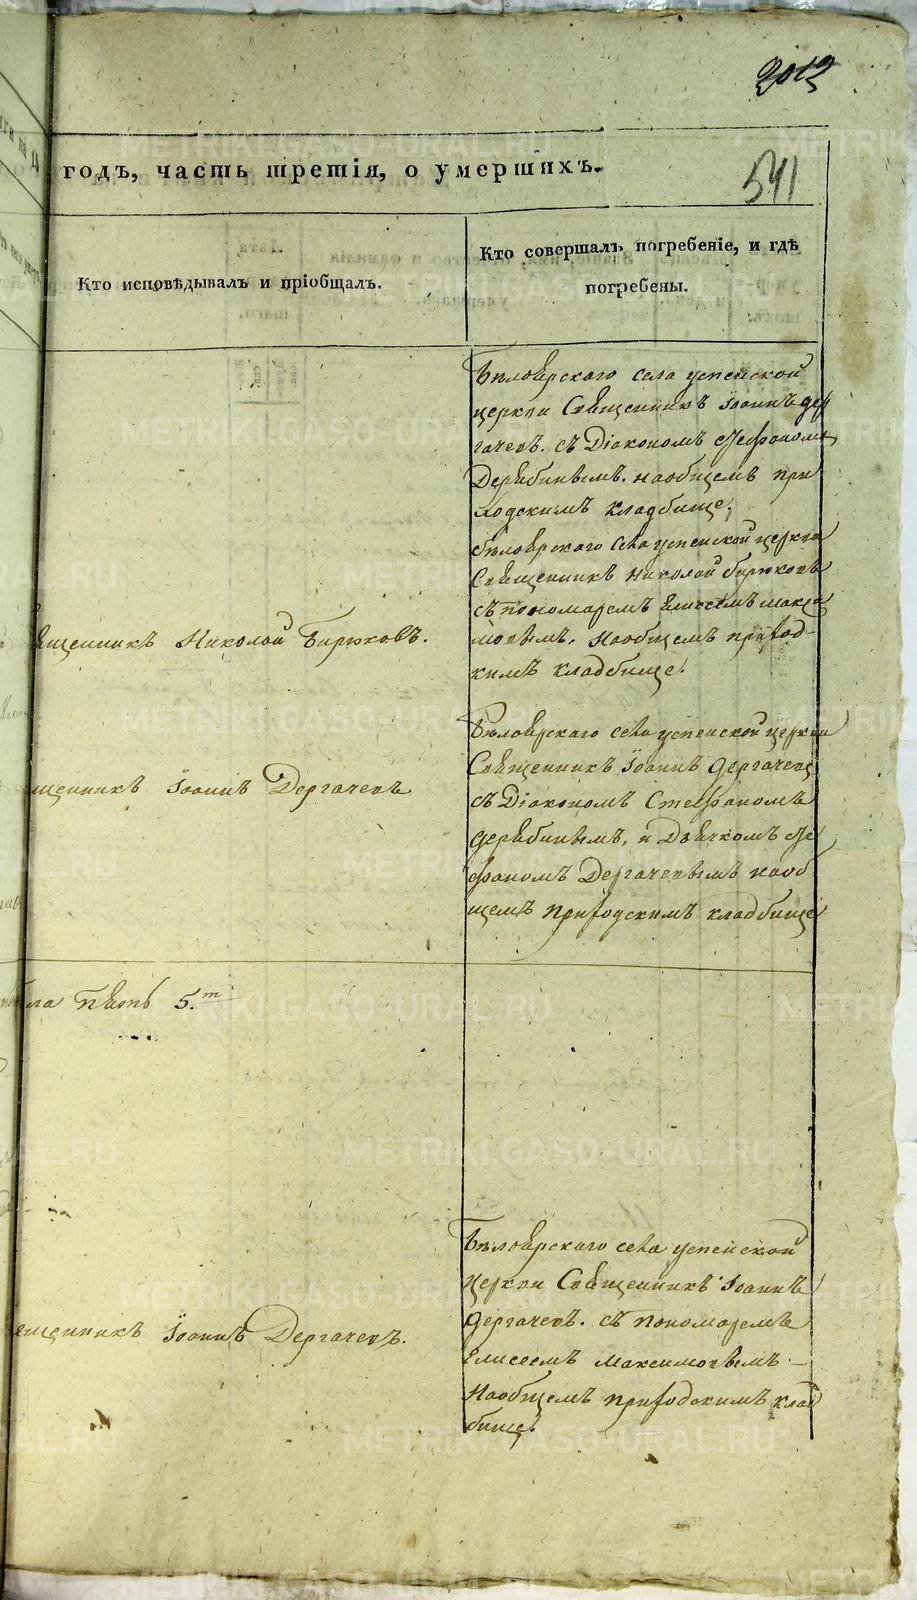 2012
годъ, часть третія, о умершихъ.
541
Кто исповѣдывалъ и пріобщалъ.
Кто совершалъ погребеніе, и гдѣ
погребены.
Бѣлоярскаго села успенской
церкви Священникъ Іоаннъ Дер
гачевъ. съ Діакономъ Стефаномъ
Дерябинымъ. наобщемъ при
ходскимъ кладбище.
бѣлоярскаго села успенской церкви
Священникъ Николай бирюковъ
съ пономаремъ Елисеемъ макси
мовымъ. Наобщемъ приход-
кимъ кладбище.
щенникъ Николай Бирюковъ.
Бѣлоярскаго села успенской церкви
Священникъ Іоаннъ Дергачевъ
съ Діакономъ Стефаномъ
дерябинымъ, и Дьячкомъ Сте
фаномъ Дергачевымъ наоб
щемъ приходскимъ кладбище
щенникъ Іоаннъ Дергачевъ
ла пять 5.т
Бѣлоярскаго села успенской
церкви Священникъ Іоаннъ
дергачевъ. съ пономаремъ
Елисеемъ максимовымъ -
Наобщемъ приходскимъ клад
бище.
щенникъ Іоаннъ Дергачевъ.
METRIKI.GASO-URAL.RU